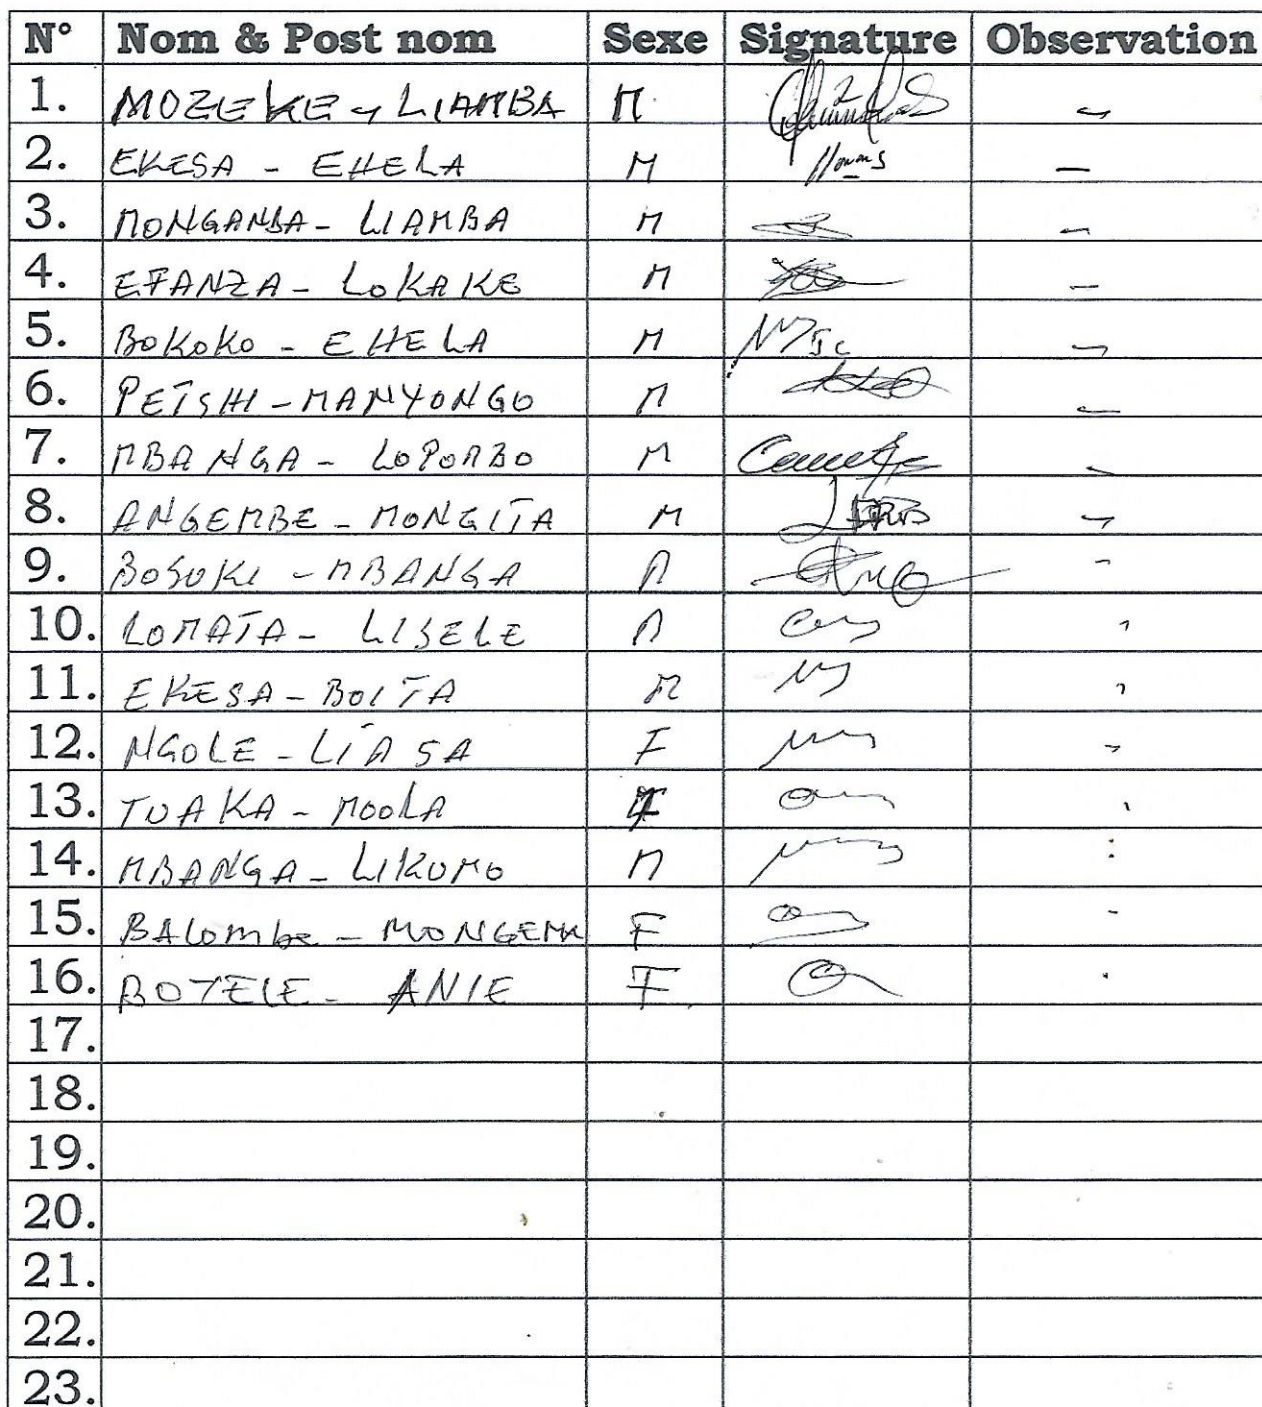 N° Nom & Post nom Sexe Signature Observation
1. MOZEKE - LIAMBA M
2. EKESA - EHELA M
3. MONGANBA - LIAMBA M
4. EFANZA - LOKAKE M
5. BOKOKO - EHELA M
6. PETSHI - MANYONGO M
7. MBANGA - LOPOMBO M
8. ANGEMBE - MONGITA M
9. BOSUKI - MBANGA M
10. LOMATA - LISELE M
11. EKESA - BOITA M
12. NGOLE - LIASA F
13. TUAKA - MOOLA F
14. MBANGA - LIKOMO M
15. BALOMbe - MONGEMA F
16. BOTELE - ANIE F
17.
18.
19.
20.
21.
22.
23.